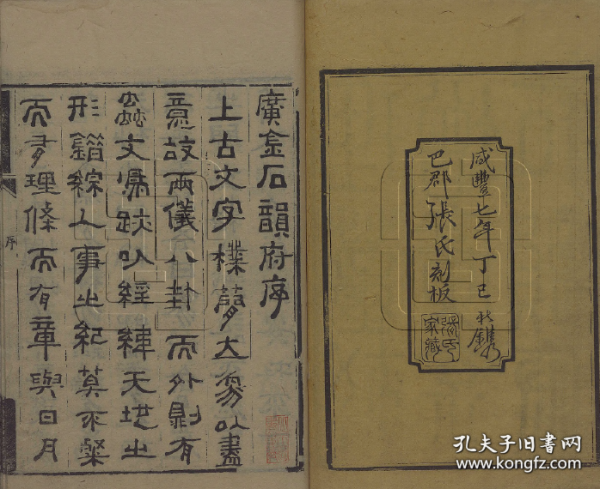 咸豐七年丁巳秋鐫
巴郡張氏刻板
張氏家藏
廣金石韻府序
上古文字樸大易以盡
意故兩儀八卦而外則有
蟲文鳥跡以經緯天地之
形錯綜人事之紀莫不粲
而有理條而有章與日月
序
孔夫子旧书网
www.kongfz.com